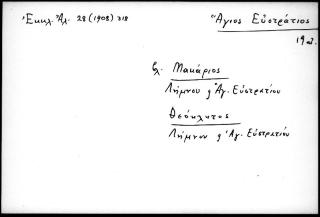 Ἐκκλ. Ἀλ. 28 (1908) 318
Ἅγιος Εὐστράτιος
βλ. Μακάριος
Λήμνου ϗ Ἁγ. Εὐστρατίου
Θεόκλητος
Λήμνου ϗ Ἁγ. Εὐστρατίου